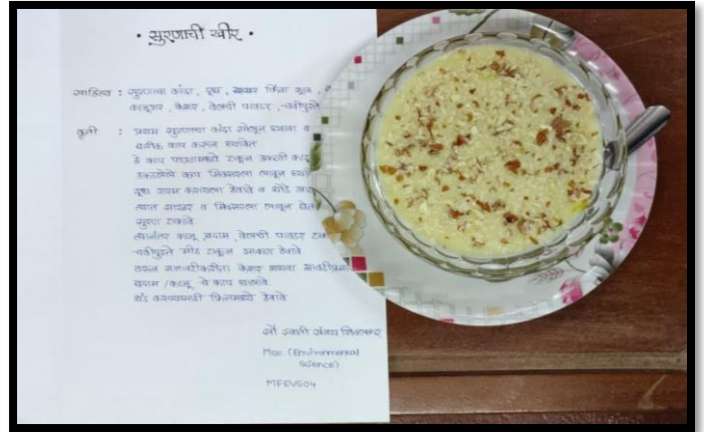 • सुरणाची खीर •
साहित्य : सुरणाचा कांदा, दूध, साखर किंवा गूळ,
काजूगर, केशर, वेलची पावडर, चवीपुरते
कृती : प्रथम सुरणाचा कांदा सोलून घ्यावा व
बारीक काप करून घ्यावेत
हे काप पाण्यामध्ये टाकून उकडी
उकडलेले काप मिक्सरला लावून
दूध गरम करायला ठेवावे व थोडे
त्यात साखर व मिक्सरला लावून
सुरण टाकावे
त्यानंतर काजू, बदाम, वेलची पावडर
चवीपुरते मीठ टाकून
वरून सजावटीकरीता केशर अथवा
बदाम / काजू चे काप घालावे
थंड करण्यासाठी फ्रिजमध्ये ठेवावे
सौ स्वाती संजय
Msc. (Environmental
Science)
MFEVS04